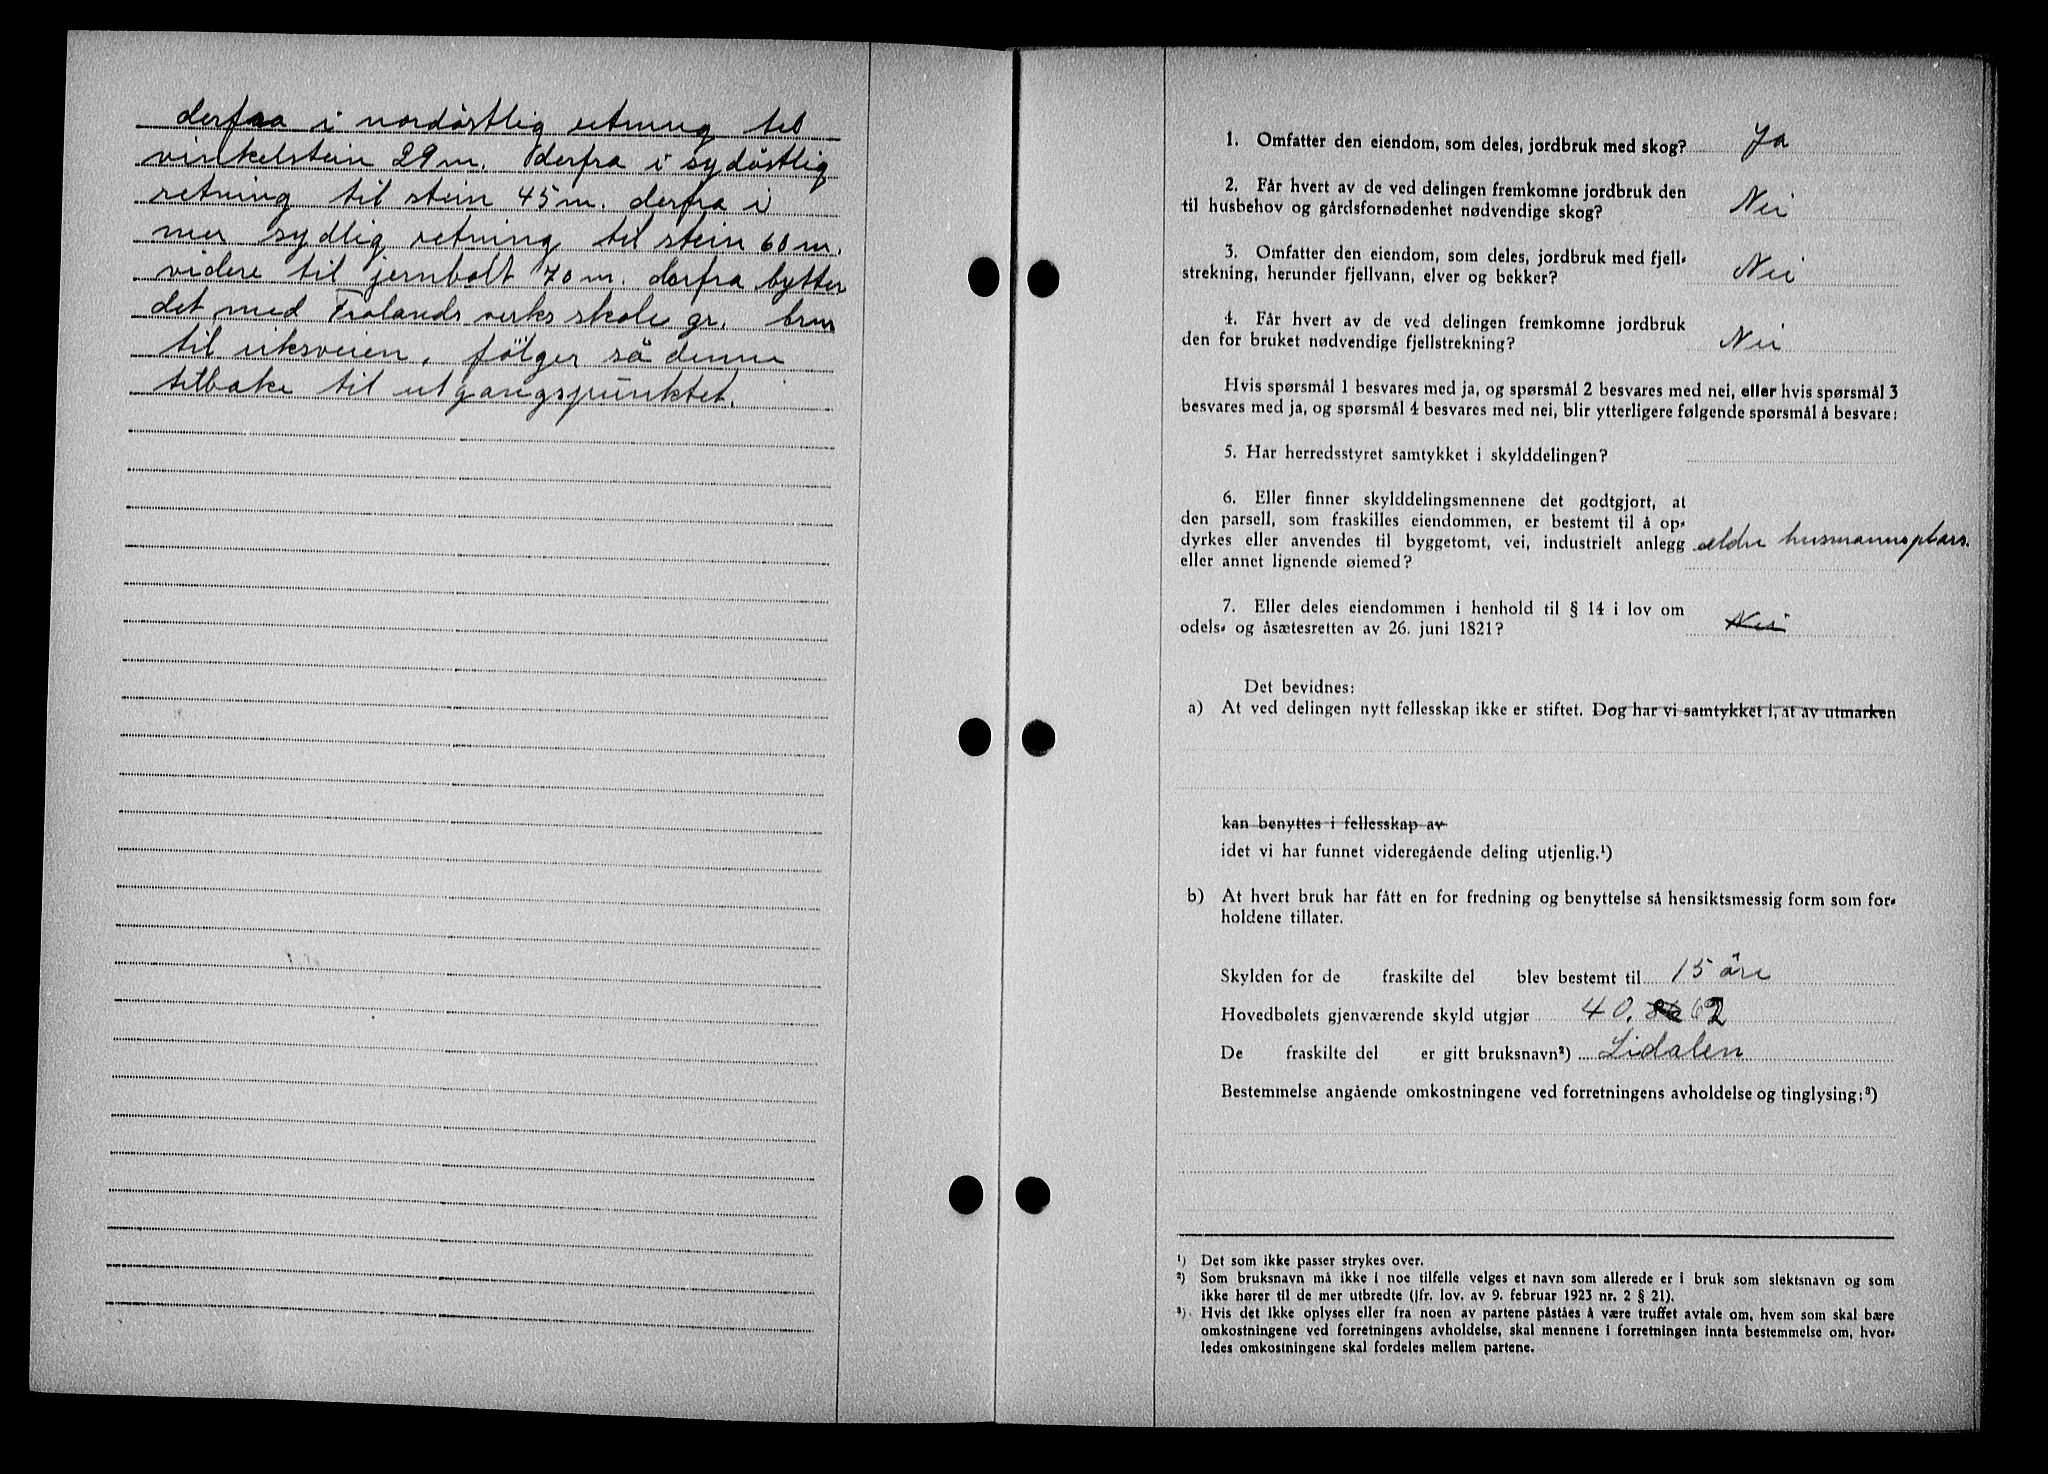 derfra i nordöstlig retning til
vinkelstein 29 m. derfra i sydöstlig
retning til stein 45 m. derfra i
mer sydlig retning til stein 60 m.
videre til jernbolt 70 m. derfra bytter
det med Frolands verks skole gr. brnr
til riksveien, fölger så denne
tilbake til utgangspunktet.
1. Omfatter den eiendom, som deles, jordbruk med skog? Ja
2. Får hvert av de ved delingen fremkomne jordbruk den
til husbehov og gårdsfornødenhet nødvendige skog? Nei
3. Omfatter den eiendom, som deles, jordbruk med fjell-
strekning, herunder fjellvann, elver og bekker? Nei
4. Får hvert av de ved delingen fremkomne jordbruk
den for bruket nødvendige fjellstrekning? Nei
Hvis spørsmål 1 besvares med ja, og spørsmål 2 besvares med nei, eller hvis spørsmål 3
besvares med ja, og spørsmål 4 besvares med nei, blir ytterligere følgende spørsmål å besvare:
5. Har herredsstyret samtykket i skylddelingen?
6. Eller finner skylddelingsmennene det godtgjort, at
den parsell, som fraskilles eiendommen, er bestemt til å op-
dyrkes eller anvendes til byggetomt, vei, industrielt anlegg ældre husmannsplass.
eller annet lignende øiemed?
7. Eller deles eiendommen i henhold til § 14 i lov om
odels- og åsætesretten av 26. juni 1821? Nei
Det bevidnes:
a) At ved delingen nytt fellesskap ikke er stiftet. Dog har vi samtykket i, at av utmarken
kan benyttes i fellesskap av
idet vi har funnet videregående deling utjenlig.¹)
b) At hvert bruk har fått en for fredning og benyttelse så hensiktsmessig form som for-
holdene tillater.
Skylden for de fraskilte del blev bestemt til 15 öre
Hovedbølets gjenværende skyld utgjør 40. 62
De fraskilte del er gitt bruksnavn²) Lidalen
Bestemmelse angående omkostningene ved forretningens avholdelse og tinglysing:³)
¹) Det som ikke passer strykes over.
²) Som bruksnavn må ikke i noe tilfelle velges et navn som allerede er i bruk som slektsnavn og som
ikke hører til de mer utbredte (jfr. lov. av 9. februar 1923 nr. 2 § 21).
³) Hvis det ikke oplyses eller fra noen av partene påståes å være truffet avtale om, hvem som skal bære
omkostningene ved forretningens avholdelse, skal mennene i forretningen innta bestemmelse om, hvor-
ledes omkostningene skal fordeles mellem partene.